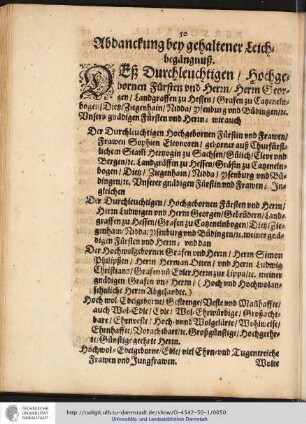 50
Abdanckung bey gehaltener Leich-
begängnuß.
DEß Durchleuchtigen / Hochge-
bornen Fürsten und Herrn / Herrn Geor-
gen / Landgraffen zu Hessen / Grafen zu Catzeneln-
bogen / Dietz / Ziegenhain / Nidda / Ysenburg und Büdingen / tc.
Unsers gnädigen Fürsten und Herrn / wie auch
Der Durchleuchtigen Hochgebornen Fürstin und Frawen /
Frawen Sophien Eleonoren / geborner auß Churfürst-
lichem Stam Hertzogin zu Sachsen / Gülich / Cleve und
Bergen / tc. Landgräffin zu Hessen / Gräfin zu Catzeneln-
bogen / Dietz / Ziegenhain / Nidda / Ysenburg und Bü-
dingen / tc. Unserer gnädigen Fürstin und Frawen / In-
gleichen
Der Durchleuchtigen / Hochgebornen Fürsten und Herrn /
Herrn Ludwigen und Herrn Georgen / Gebrüdern / Land-
graffen zu Hessen / Grafen zu Catzenelnbogen / Dietz / Zie-
genhain / Nidda / Ysenburg und Büdingen / tc. meiner gnädi-
gen Fürsten und Herrn / und dan
Der Hochwolgebornen Grafen und Herrn / Herrn Simon
Philipßen / Herrn Herman Otten / und Herrn Ludwig
Christians / Grafen und Edler Herrn zur Lippe / tc. meiner
gnädigen Grafen und Herrn / Hoch und Hochwolan-
sehnliche Herrn Abgesandte.
Hoch wol Edelgeborne / Gestrenge / Veste und Mañhaffte /
auch Wol-Edle / Edle / Wol-Ehrwürdige / Großacht-
bare / Ehrnveste / Hoch- und Wolgelärte / Wolweise /
Ehrnhaffte / Vorachtbare / tc. Großgünstige / Hochgehr-
te / Günstige geehrte Herrn.
Hochwol-Edelgeborne / Edle / viel Ehrn- und Tugentreiche
Frawen und Jungfrawen.
Wolte
http://radigit.ulb.tu-darmstadt.de/show/O-4542-50-1/0050
Universitäts- und Landesbibliothek Darmstadt